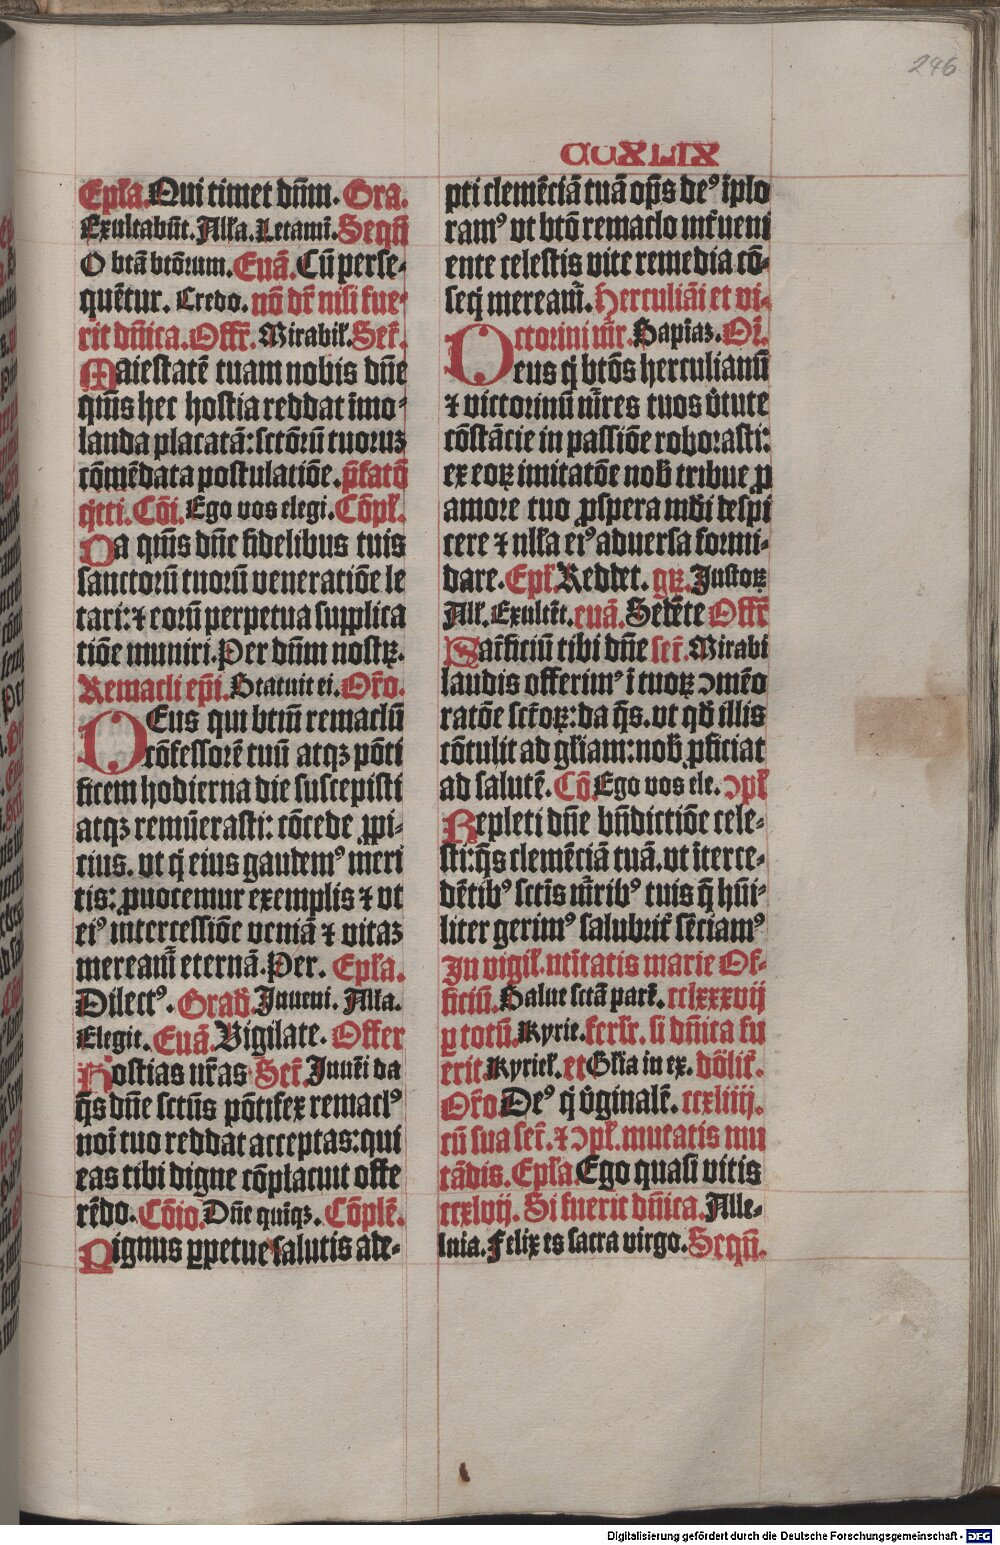 246
CCXLIX
Ep̄la. Qui timet dn̄m. Gra.
Exultabūt. Alla. Letami. Seqn̄
O btā btōrum. Euā. Cū perse-
quētur. Credo. nō dr̄ nisi fue-
rit dn̄ica. Offr̄. Mirabil̄. Secr̄.
Maiestatē tuam nobis dn̄e
qm̄s hec hostia reddat īmo-
landa placatā: sctōrū tuoruꝫ
cōmēdata postulatiōe. p̄fatō
q̄tti. Cōi. Ego vos elegi. Cōpl̄.
Da qm̄s dn̄e fidelibus tuis
sanctorū tuorū veneratiōe le
tari: ⁊ eorū perpetua supplica
tiōe muniri. Per dn̄m nostꝝ.
Remacli ep̄i. Statuit ei. Or̄o.
DEus qui btm̄ remaclū
cōfessorē tuū atqꝫ pōti
ficem hodierna die suscepisti
atqꝫ remūerasti: cōcede ꝓpi-
cius. vt q̄ eius gaudemꝰ meri
tis: ꝓuocemur exemplis ⁊ vt
eiꝰ intercessiōe veniā ⁊ vitaꝫ
meream̄ eternā. Per. Ep̄la.
Dilectꝰ. Grad̄. Inueni. Alla.
Elegit. Euā. Vigilate. Offer
Hostias nr̄as Secr̄. Inuēi da
q̄s dn̄e sctūs pōtifex remaclꝰ
noī tuo reddat acceptas: qui
eas tibi digne cōplacuit offe
rēdo. Cōīo. Dn̄e quīqꝫ. Cōplē.
Pignus ꝑpetue salutis ade-
pti clemēciā tuā op̄s deꝰ īplo
ramꝰ vt btō remaclo īnf̄ueni
ente celestis vite remedia cō-
seq̄ meream̄. Herculiāi et vi-
ctorini mr̄. Sapīaꝫ. Or̄.
Deus q̄ btōs herculianū
⁊ victorinū mr̄es tuos v̄tute
cōstācie in passiōe roborasti:
ex eoꝝ imitatōe nob̄ tribue ꝓ
amore tuo ꝓspera mūdi despi
cere ⁊ nll̄a eiꝰ aduersa formi-
dare. Ep̄l. Reddet. gꝝ. Justoꝝ
All̄. Exultēt. euā. Sedēte Offr̄
Sac̄ficiū tibi dn̄e secr̄. Mirabi
laudis offerimꝰ ī tuoꝝ ↄmēo
ratōe sctōꝝ: da q̄s. vt qd̄ illis
cōtulit ad gl̄iam: nob̄ ꝓficiat
ad salutē. Cō. Ego vos ele. ↄpl̄
Repleti dn̄e bn̄dictiōe cele-
sti: q̄s clemēciā tuā. vt īterce-
dētibꝰ sctīs mr̄ibꝰ tuis q̄ hūi-
liter gerimꝰ salubrit̄ sēciamꝰ
In vigil̄. ntītatis marie Of-
ficiū. Salue sctā parē. cclxxxvij
ꝑ totū. Kyrie. ferīr. si dn̄ica fu
erit. Kyriel̄. et Gl̄ia in ex. dōlic̄.
Or̄o Deꝰ q̄ v̄ginalē. ccxliiij.
cū sua secr̄. ⁊ ↄpl̄. mutatis mu
tādis. Ep̄la. Ego quasi vitis
ccxlvij. Si fuerit dn̄ica. Alle-
luia. Felix es sacra virgo. Seqn̄.
Digitalisierung gefördert durch die Deutsche Forschungsgemeinschaft - DFG